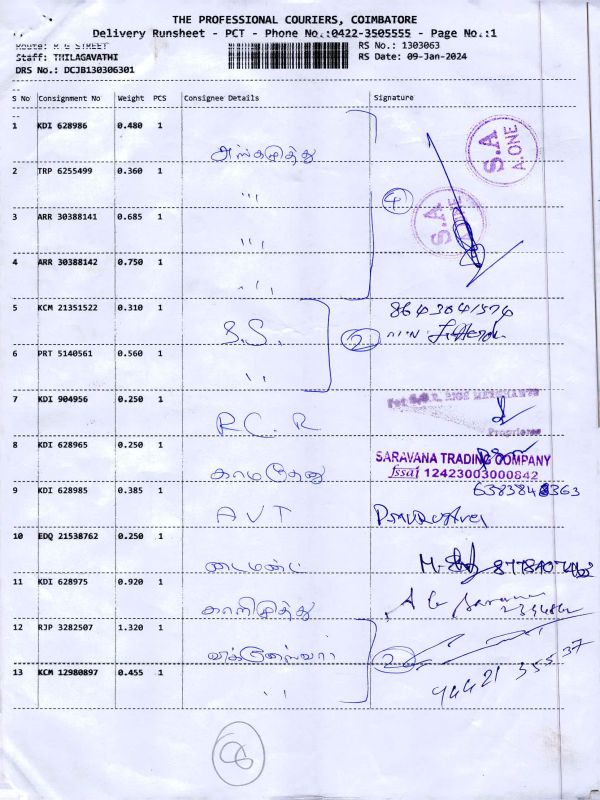 THE PROFESSIONAL COURIERS, COIMBATORE
Delivery Runsheet - PCT - Phone No.:0422-3505555 - Page No.:1
Route: R G STREET
RS No.: 1303063
Staff: THILAGAVATHI
RS Date: 09-Jan-2024
DRS No.: DCJB130306301
S No Consignment No Weight PCS Consignee Details Signature
1 KDI 628986 0.480 1
அங்காமுத்து
S.A
A.ONE
2 TRP 6255499 0.360 1 '''
4
S.A
A.ONE
3 ARR 30388141 0.685 1 '''
4 ARR 30388142 0.750 1 '''
5 KCM 21351522 0.310 1 S.S.
2
6 PRT 5140561 0.560 1 ''
7 KDI 904956 0.250 1 R.C.R
RICE MERCHANTS
8 KDI 628965 0.250 1 காமதேனு
SARAVANA TRADING COMPANY
fssai 12423003000842
9 KDI 628985 0.385 1 AVT
10 EDQ 21538762 0.250 1 டைமண்ட்
11 KDI 628975 0.920 1 காளிமுத்து
12 RJP 3282507 1.320 1
2
94421 35537
13 KCM 12980897 0.455 1 ''